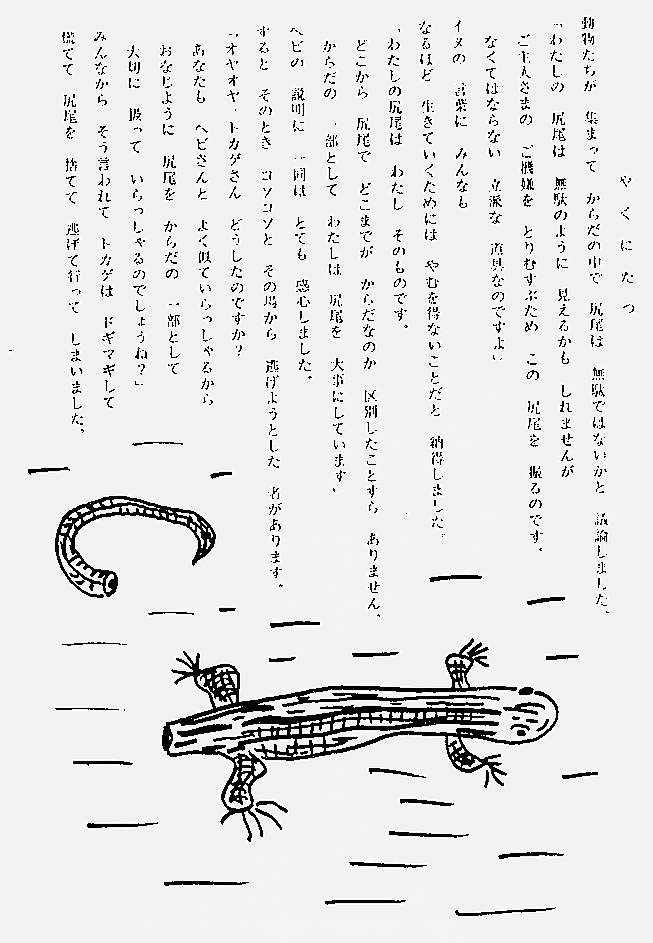 やくにたつ
動物たちが 集まって からだの中で 尻尾は 無駄ではないかと 議論しました。
「わたしの 尻尾は 無駄のように 見えるかも しれませんが
ご主人さまの ご機嫌を とりむすぶため この 尻尾を 振るのです。
なくてはならない 立派な 道具なのですよ」
イヌの 言葉に みんなも
なるほど 生きていくためには やむを得ないことだと 納得しました。
「わたしの尻尾は わたし そのものです。
どこから 尻尾で どこまでが からだなのか 区別したことすら ありません。
からだの 一部として わたしは 尻尾を 大事にしています」
ヘビの 説明に 一同は とても 感心しました。
すると そのとき コソコソと その場から 逃げようとした 者があります。
「オヤオヤ・トカゲさん どうしたのですか?
あなたも ヘビさんと よく似ていらっしゃるから
おなじように 尻尾を からだの 一部として
大切に 扱って いらっしゃるのでしょうね?」
みんなから そう言われて トカゲは ドギマギして
慌てて 尻尾を 捨てて 逃げて行って しまいました。